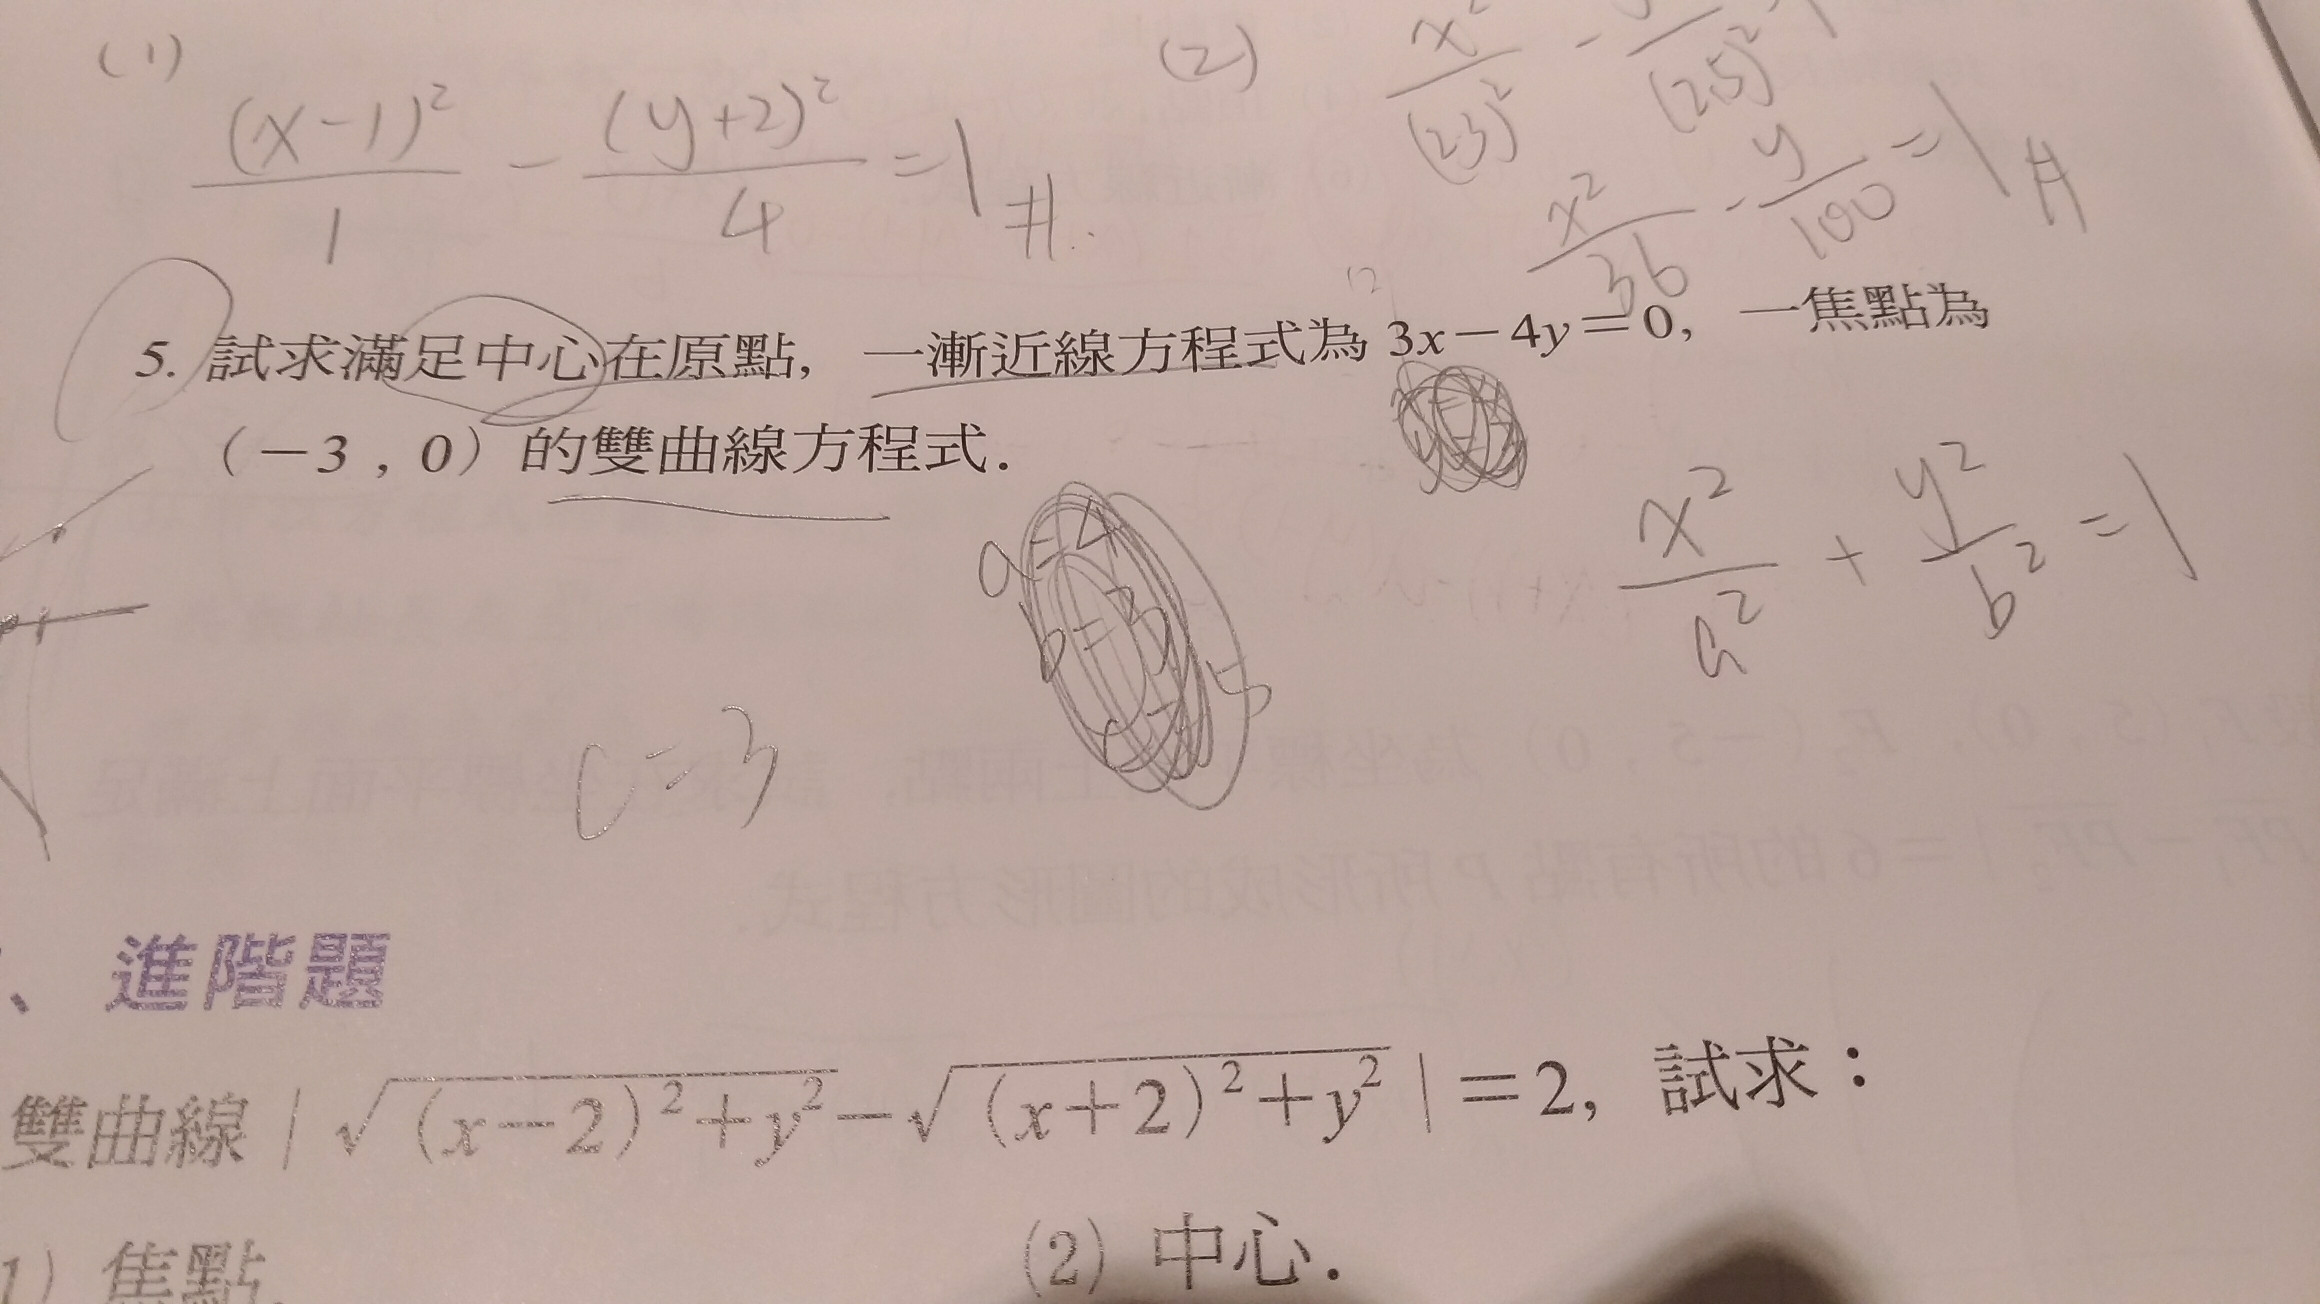 (1)
(x-1)²/1 - (y+2)²/4 = 1 #
(2)
x²/(23)² - /(25)²
x²/36 - y/100 = 1 #
5. 試求滿足中心在原點, 一漸近線方程式為 3x-4y=0, 一焦點為
(-3, 0) 的雙曲線方程式.
x²/a² + y²/b² = 1
a=4
b=3
c=3
、進階題
雙曲線 | √(x-2)²+y² - √(x+2)²+y² | =2, 試求：
1) 焦點.
(2) 中心.